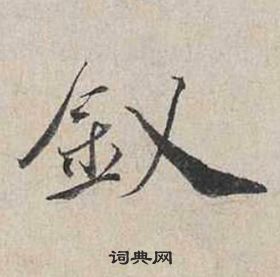 釵
词典网